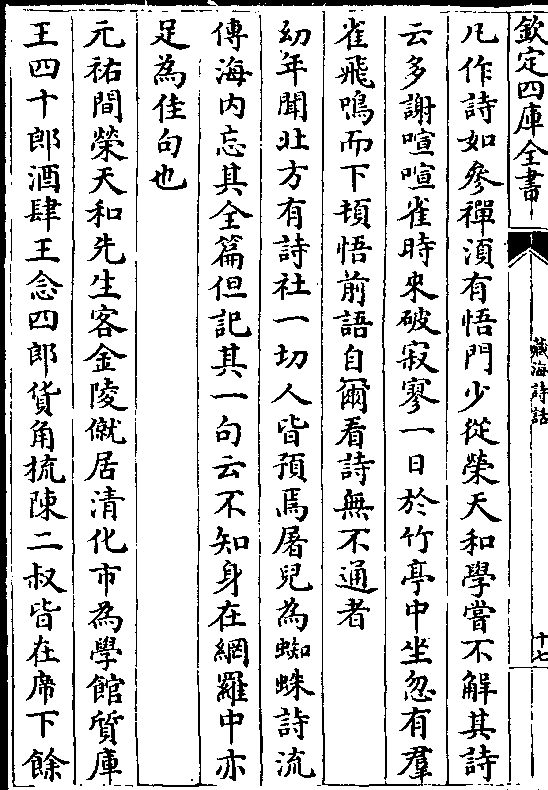 欽定四庫全書
藏海詩話
十七
凡作詩如參禪須有悟門少從榮天和學嘗不解其詩
云多謝喧喧雀時來破寂寥一日於竹亭中坐忽有羣
雀飛鳴而下頓悟前語自爾看詩無不通者
幼年聞北方有詩社一切人皆預焉屠兒為蜘蛛詩流
傳海内忘其全篇但記其一句云不知身在網羅中亦
足為佳句也
元祐間榮天和先生客金陵僦居清化市為學館質庫
王四十郎酒肆王念四郎貨角梳陳二叔皆在席下餘